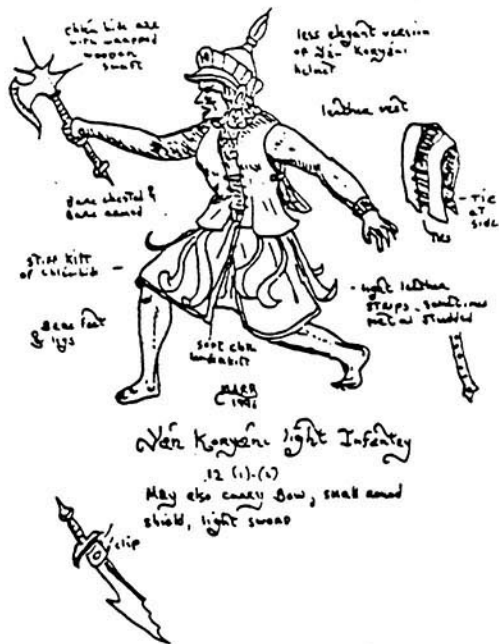 chlén hide axe
with wrapped
wooden
shaft
less elegant version
of Yán Koryáni
helmet
leather vest
Bare chested &
Bare armed
Tie
at
side
Ties
stiff kilt
of chlénhide
Bare feet
& legs
soft
underkilt
light leather
strips - sometimes
metal studded
1996
Yán Koryáni light Infantry
12 (1)-(2)
May also carry Bow, small round
shield, light sword
clip